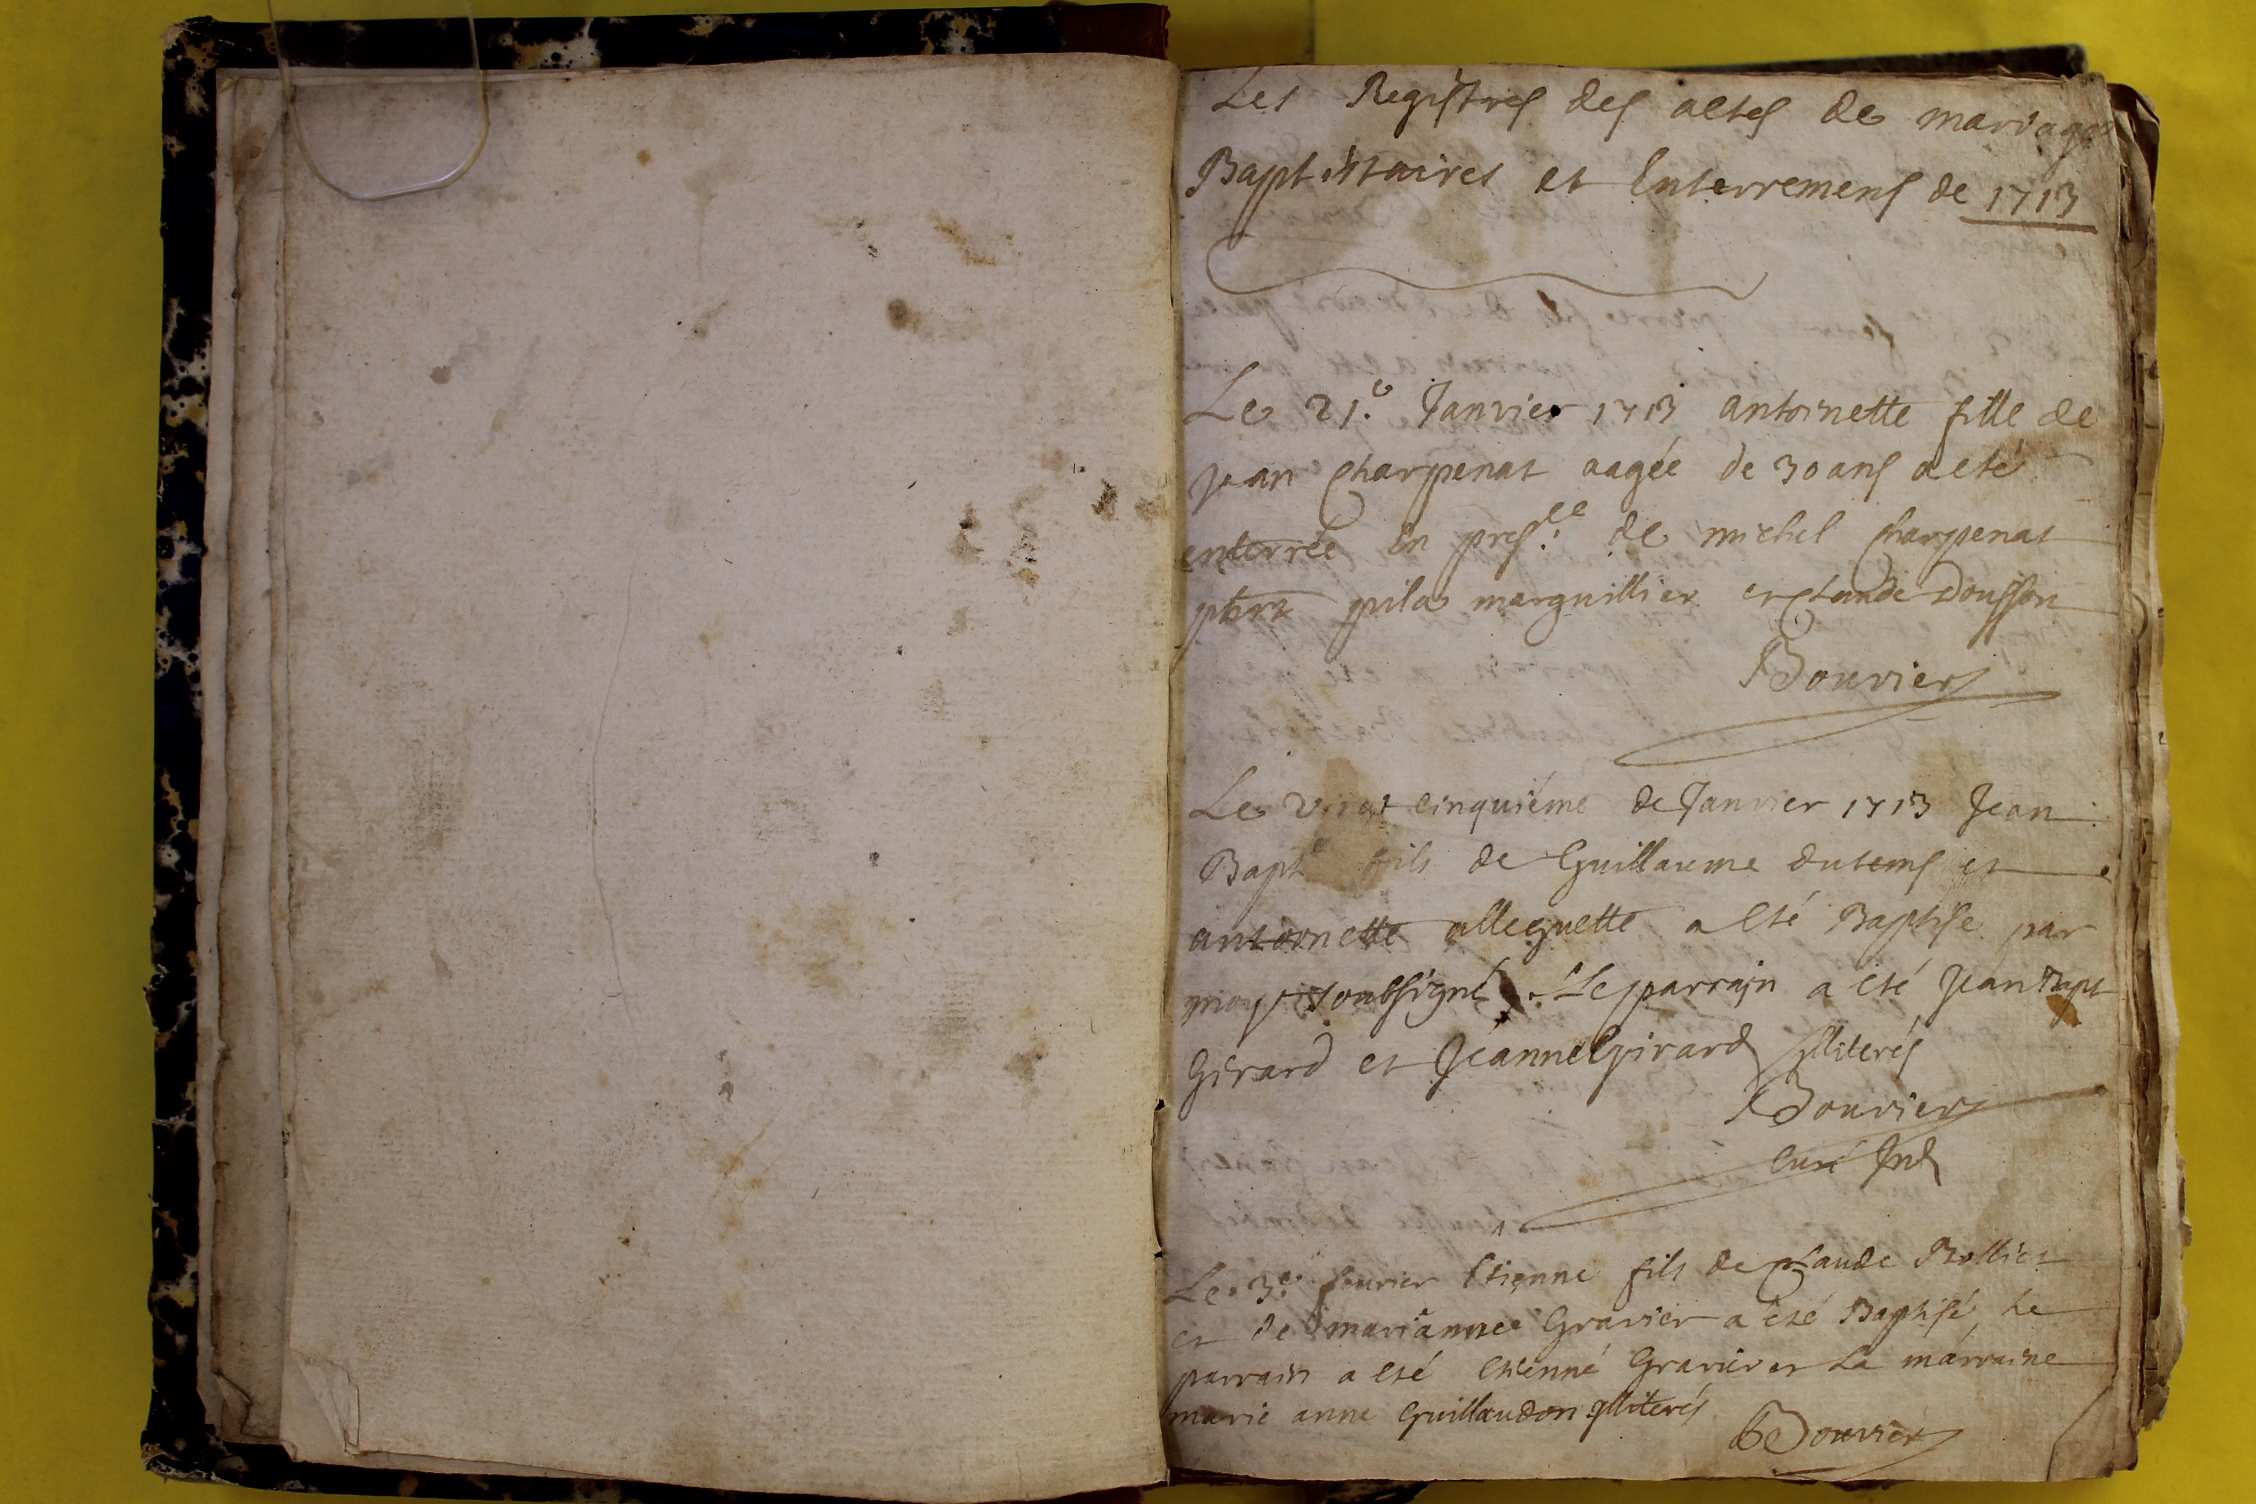 Les Registres des actes de mariages
Baptistaires et Enterremens de 1713
Le 21.e Janvier 1713 antoinette fille de
Jean Charpenat aagée de 30 ans a eté
enterrée en pres.ce de michel Charpenat
pilas marguillier et Claude Dousson
Bouvier
Le vingt cinquiéme de Janvier 1713 Jean
Bapt fils de Guillaume dutems et
antoinette alleguette a eté Baptise par
moy soubsigné. Le parrain a eté Jean Bapt
Girard et Jeanne Girard Jlliterés
Bouvier
Curé
Le 3.e feurier Etienne fils de Claude Rollier
et de marianne Gravier a eté Baptisé, Le
parrain a eté Etienne Gravier et La marraine
marie anne Guillaudon Jlliterés
Bouvier